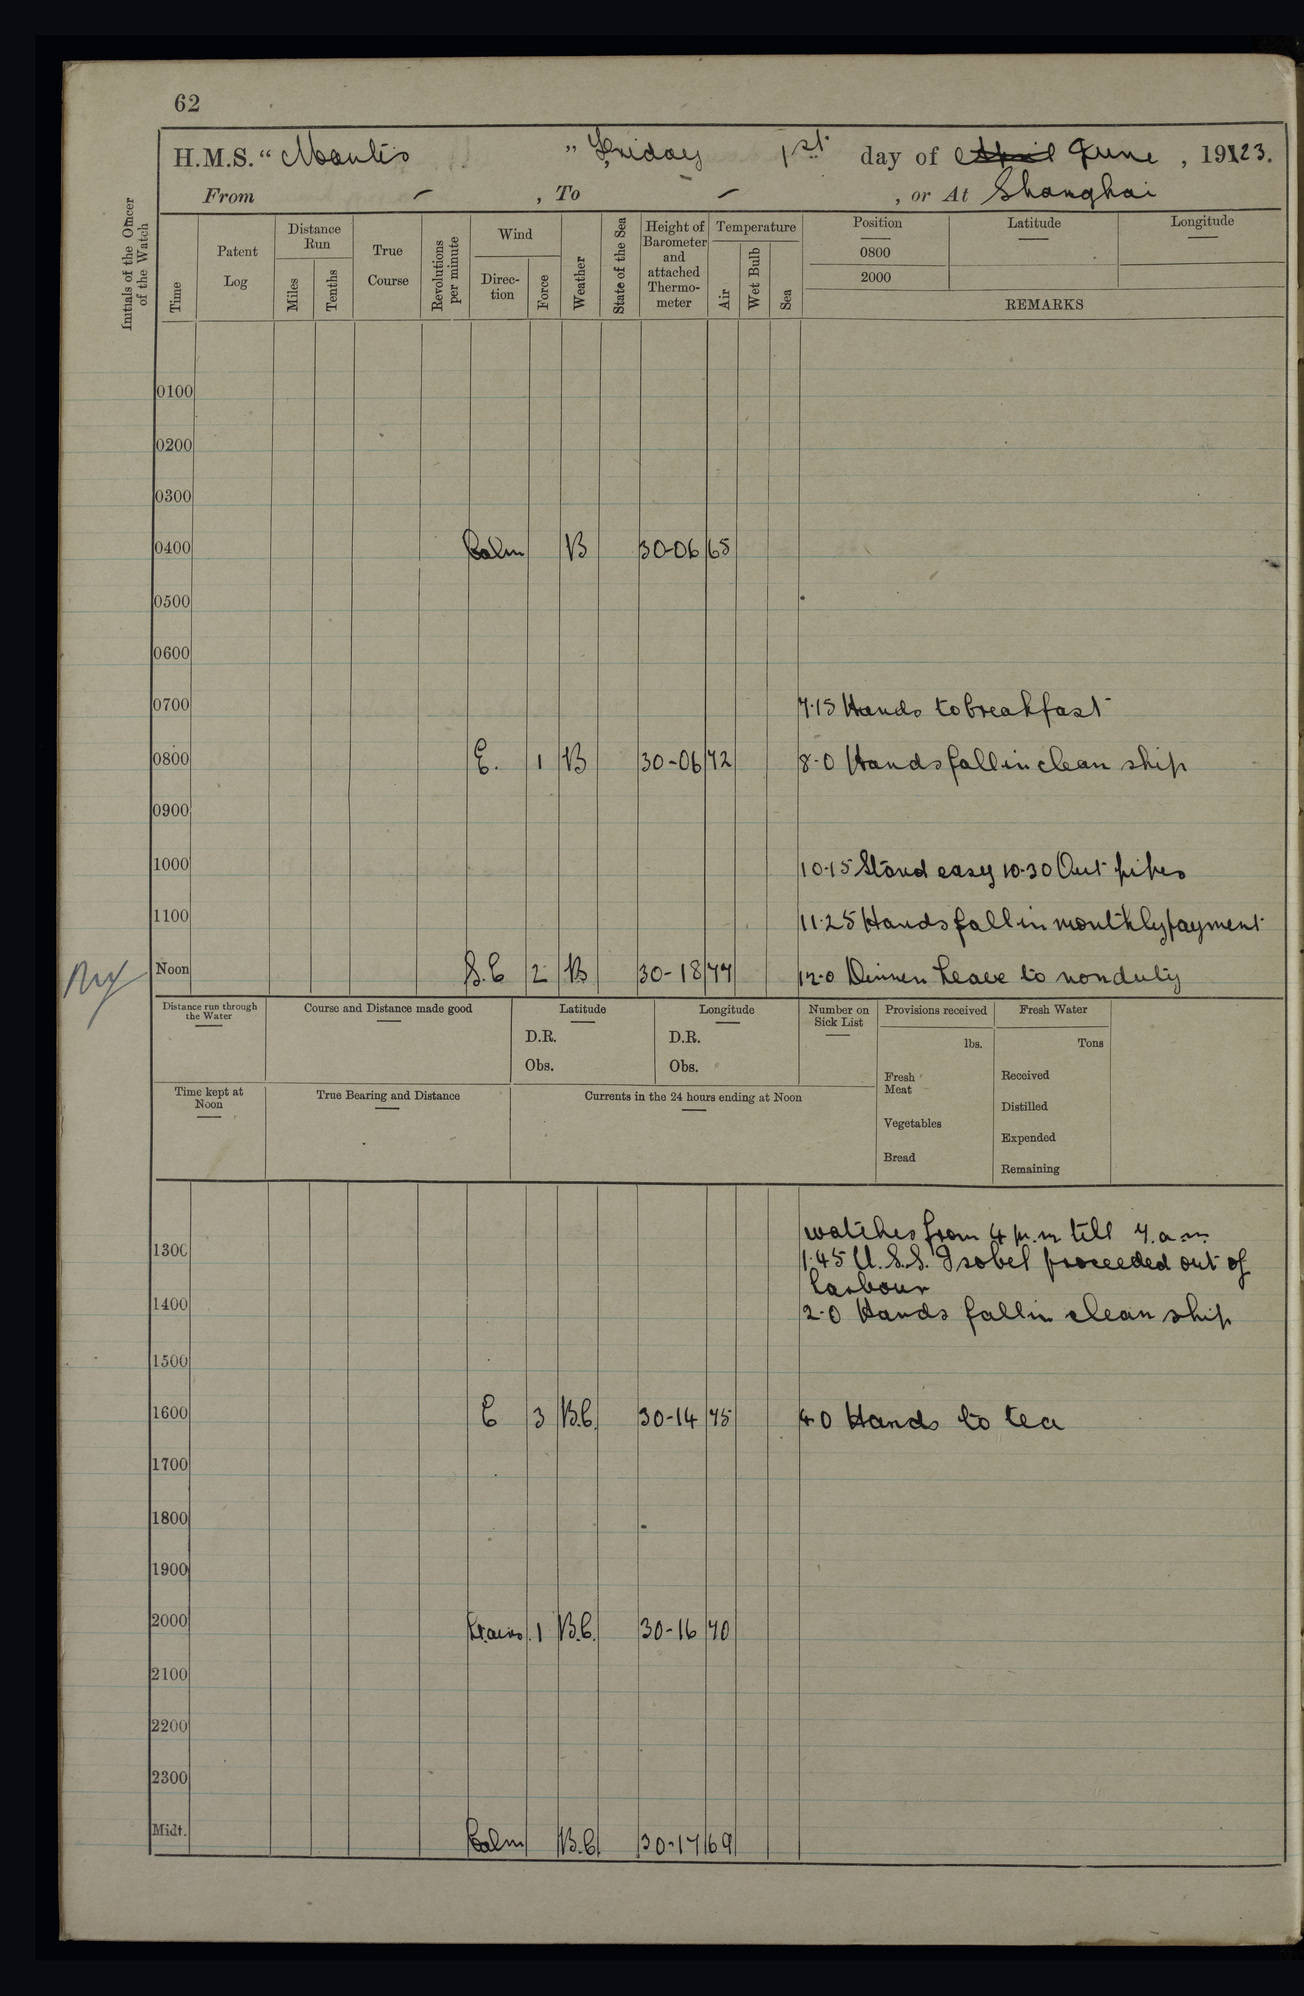 62
H.M.S. “ Mantis ” Friday 1st day of April June , 19123.
From – , To – , or At Shanghai
Initials of the Officer of the Watch
Time
Patent Log
Distance Run
Miles
Tenths
True Course
Revolutions per minute
Wind
Direc-tion
Force
Weather
State of the Sea
Height of Barometer and attached Thermo-meter
Temperature
Air
Wet Bulb
Sea
Position
0800
2000
Latitude
Longitude
REMARKS
0100
0200
0300
0400 Calm B 30-06 65
0500
0600
0700 7.15 Hands to breakfast
0800 E. 1 B 30-06 72 8-0 Hands fall in clean ship
0900
1000 10.15 Stand easy 10.30 Out pipes
1100 11.25 Hands fall in monthly payment
Noon S.E 2 B 30-18 77 12.0 Dinner Leave to nonduty
Distance run through the Water
Course and Distance made good
Latitude
D.R.
Obs.
Longitude
D.R.
Obs.
Number on Sick List
Provisions received
lbs.
Fresh Meat
Vegetables
Bread
Fresh Water
Tons
Received
Distilled
Expended
Remaining
Time kept at Noon
True Bearing and Distance
Currents in the 24 hours ending at Noon
watches from 4 p.m till 7.a.m.
1300 1.45 U.S.S. Isobel proceeded out of
harbour
1400 2.0 Hands fall in clean ship
1500
1600 E 3 B.C. 30-14 75 4.0 Hands to tea
1700
1800
1900
2000 1 B.C. 30-16 70
2100
2200
2300
Midt. Calm B.C 30-17 69